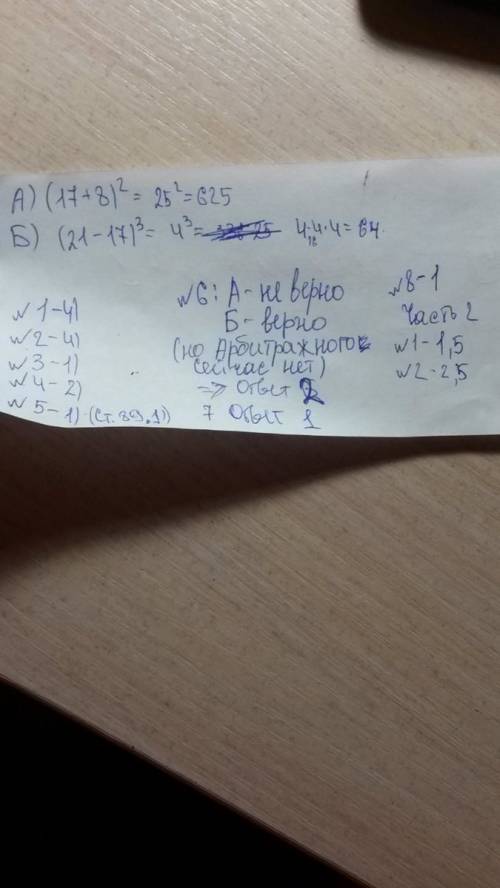 А) (17+8)² = 25² = 625
Б) (21-17)³ = 4³ = 4·4·4 = 64
№1-4)
№2-4)
№3-1)
№4-2)
№5-1) (ст. 89.1))
№6: А-не верно
Б-верно
(но Арбитражного
сейчас нет)
=> Ответ 2
7 Ответ 1
№8-1
Часть 2
№1-1,5
№2-2,5